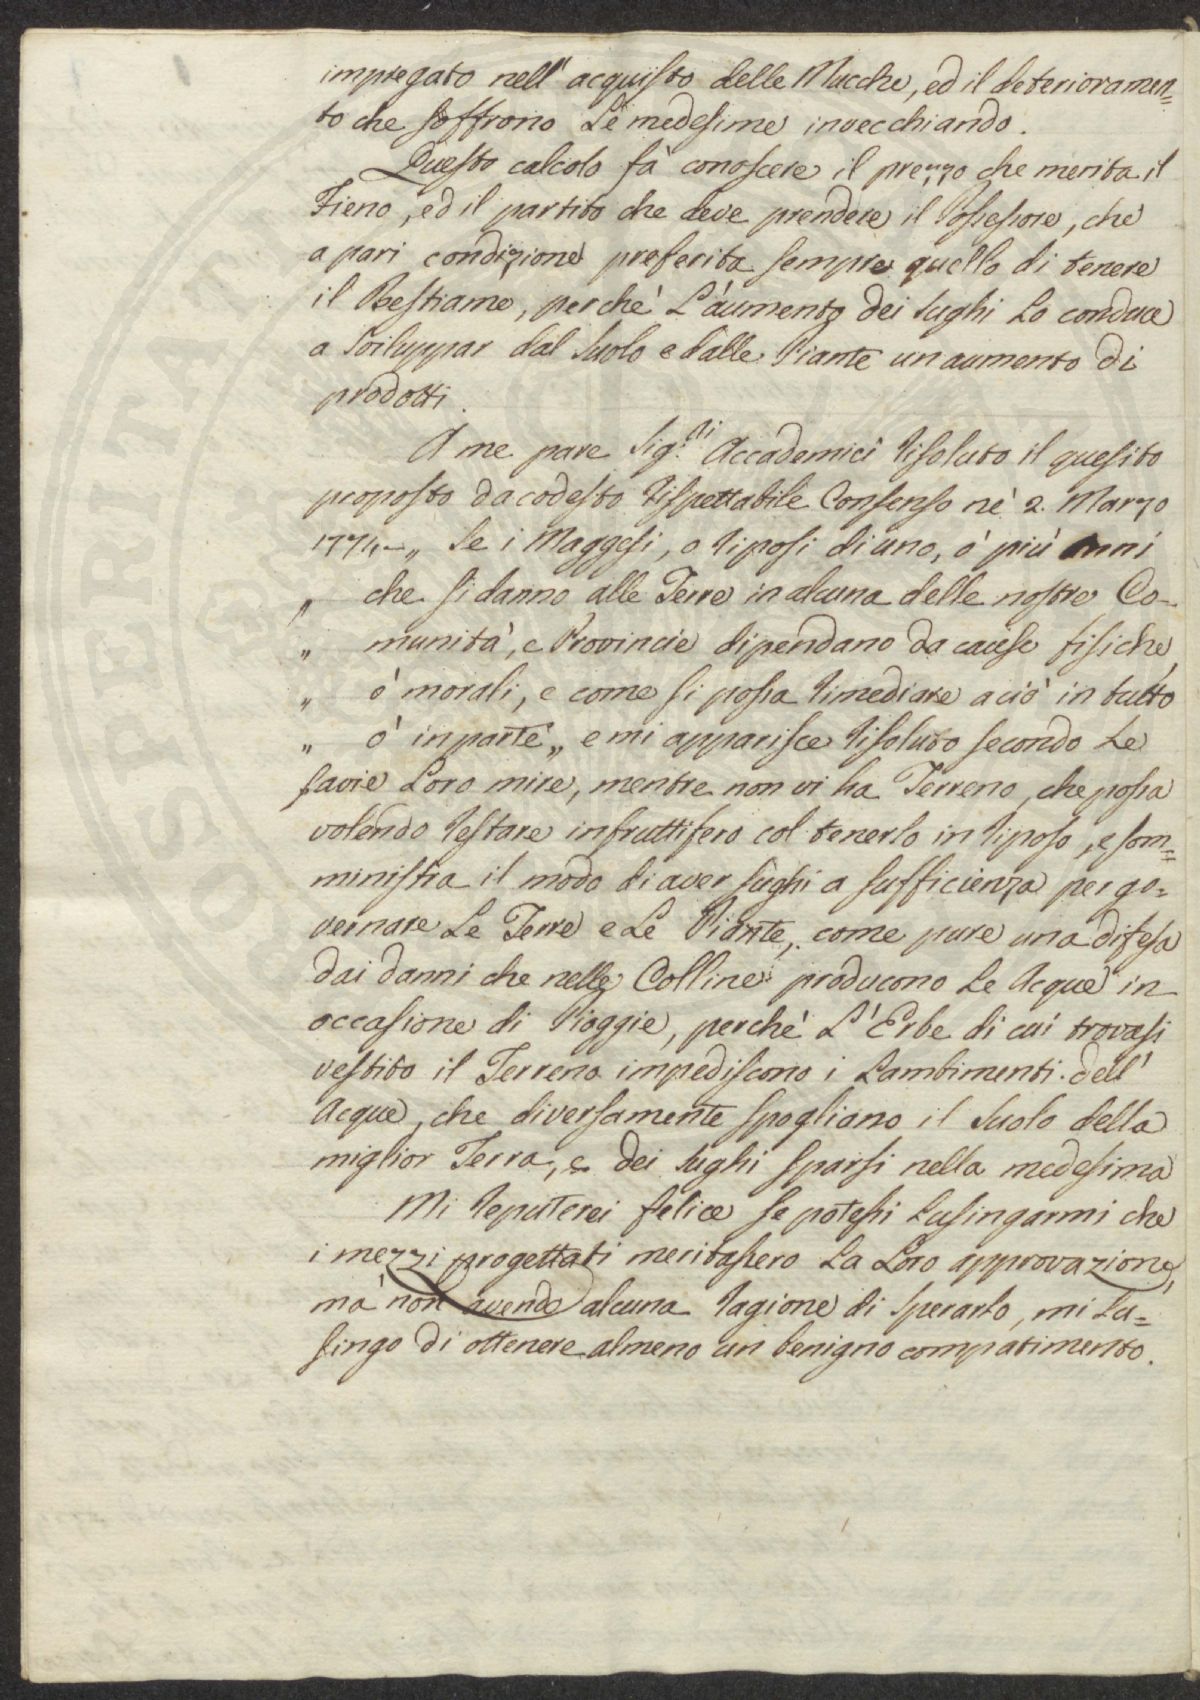 impiegato nell' acquisto delle Mucche, ed il deterioramen=
to che soffrono Le medesime invecchiando.
Questo calcolo fà conoscere il prezzo che merita il
Fieno, ed il partito che deve prendere il Possessore, che
a pari condizione preferita sempre quello di tenere
il Bestiame, perchè L'aumento dei sughi Lo conduce
a sviluppar dal suolo e dalle Piante un aumento di
prodotti.
A me pare Sig.ri Accademici risoluto il quesito
proposto da codesto rispettabile Consenso nè 2. Marzo
1774 „ Se i Maggesi, o riposi di uno, ò più anni
„ che si danno alle Terre in alcuna delle nostre Co-
„ munità, e Provincie dipendano da cause fisiche,
„ ò morali, e come si possa rimediare a ciò in tutto
„ ò in parte „ e mi apparisce risoluto secondo Le
savie Loro mire, mentre non vi ha Terreno, che possa
volendo restare infruttifero col tenerlo in riposo, e som=
ministra il modo di aver sughi a sufficienza per go=
vernare Le Terre e Le Piante, come pure una difesa
dai danni che nelle Colline producono Le Acque in
occasione di Pioggie, perchè L'Erbe di cui trovasi
vestito il Terreno impediscono i Lambimenti dell'
Acque, che diversamente spogliano il suolo della
miglior Terra, e dei sughi sparsi nella medesima
Mi reputerei felice se potessi Lusingarmi che
i mezzi progettati meritassero La Loro approvazione,
mà non avendo alcuna ragione di sperarlo, mi Lu=
singo di ottenere almeno un benigno compatimento.
SPERITAT